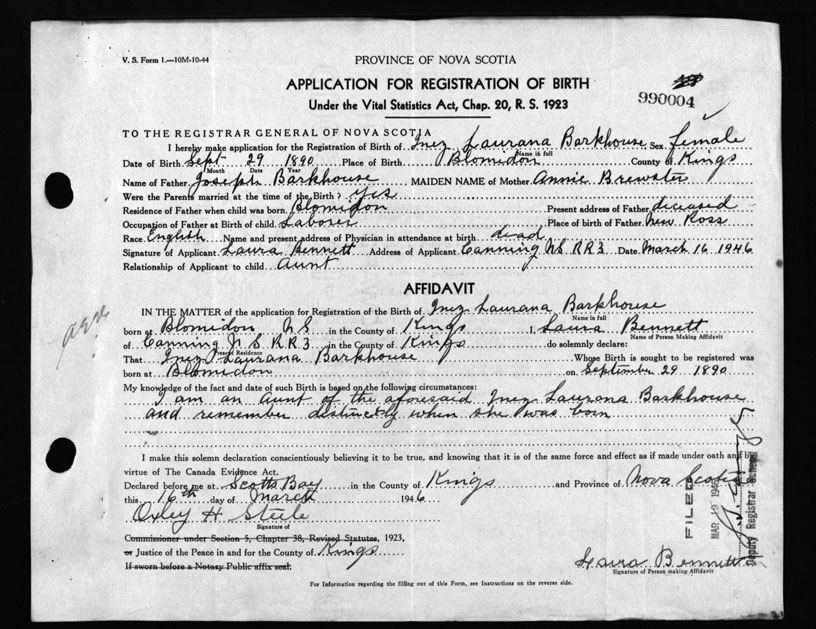 V. S. Form 1.—10M-10-44
PROVINCE OF NOVA SCOTIA
APPLICATION FOR REGISTRATION OF BIRTH
Under the Vital Statistics Act, Chap. 20, R. S. 1923
990004
TO THE REGISTRAR GENERAL OF NOVA SCOTIA
I hereby make application for the Registration of Birth of Inez Laurana Barkhouse Sex female
Name in full
Date of Birth Sept 29 1890 Place of Birth Blomidon County of Kings
Month Date Year
Name of Father Joseph Barkhouse MAIDEN NAME of Mother Annie Brewster
Were the Parents married at the time of the Birth? Yes
Residence of Father when child was born Blomidon Present address of Father deceased
Occupation of Father at Birth of child Laborer Place of birth of Father New Ross
Race English Name and present address of Physician in attendance at birth dead
Signature of Applicant Laura Bennett Address of Applicant Canning N.S. RR3 Date March 16 1946
Relationship of Applicant to child Aunt
AFFIDAVIT
IN THE MATTER of the application for Registration of the Birth of Inez Laurana Barkhouse
Name in full
born at Blomidon, N S in the County of Kings I, Laura Bennett
Name of Person Making Affidavit
of Canning N. S. R.R.3 in the County of Kings do solemnly declare:
Present Residence
That Inez Laurana Barkhouse Whose Birth is sought to be registered was
born at Blomidon on September 29 1890
My knowledge of the fact and date of such Birth is based on the following circumstances:
I am an aunt of the aforesaid Inez Laurana Barkhouse
and remember distinctly when she was born
I make this solemn declaration conscientiously believing it to be true, and knowing that it is of the same force and effect as if made under oath and by
virtue of The Canada Evidence Act.
Declared before me at Scotts Bay in the County of Kings and Province of Nova Scotia
this 16th day of March 1946
Oxley H Steele
Signature of
Commissioner under Section 5, Chapter 38, Revised Statutes, 1923,
or Justice of the Peace in and for the County of Kings
If sworn before a Notary Public affix seal.
Laura Bennett
Signature of Person making Affidavit
FILED
Deputy Registrar General
For Information regarding the filling out of this Form, see Instructions on the reverse side.